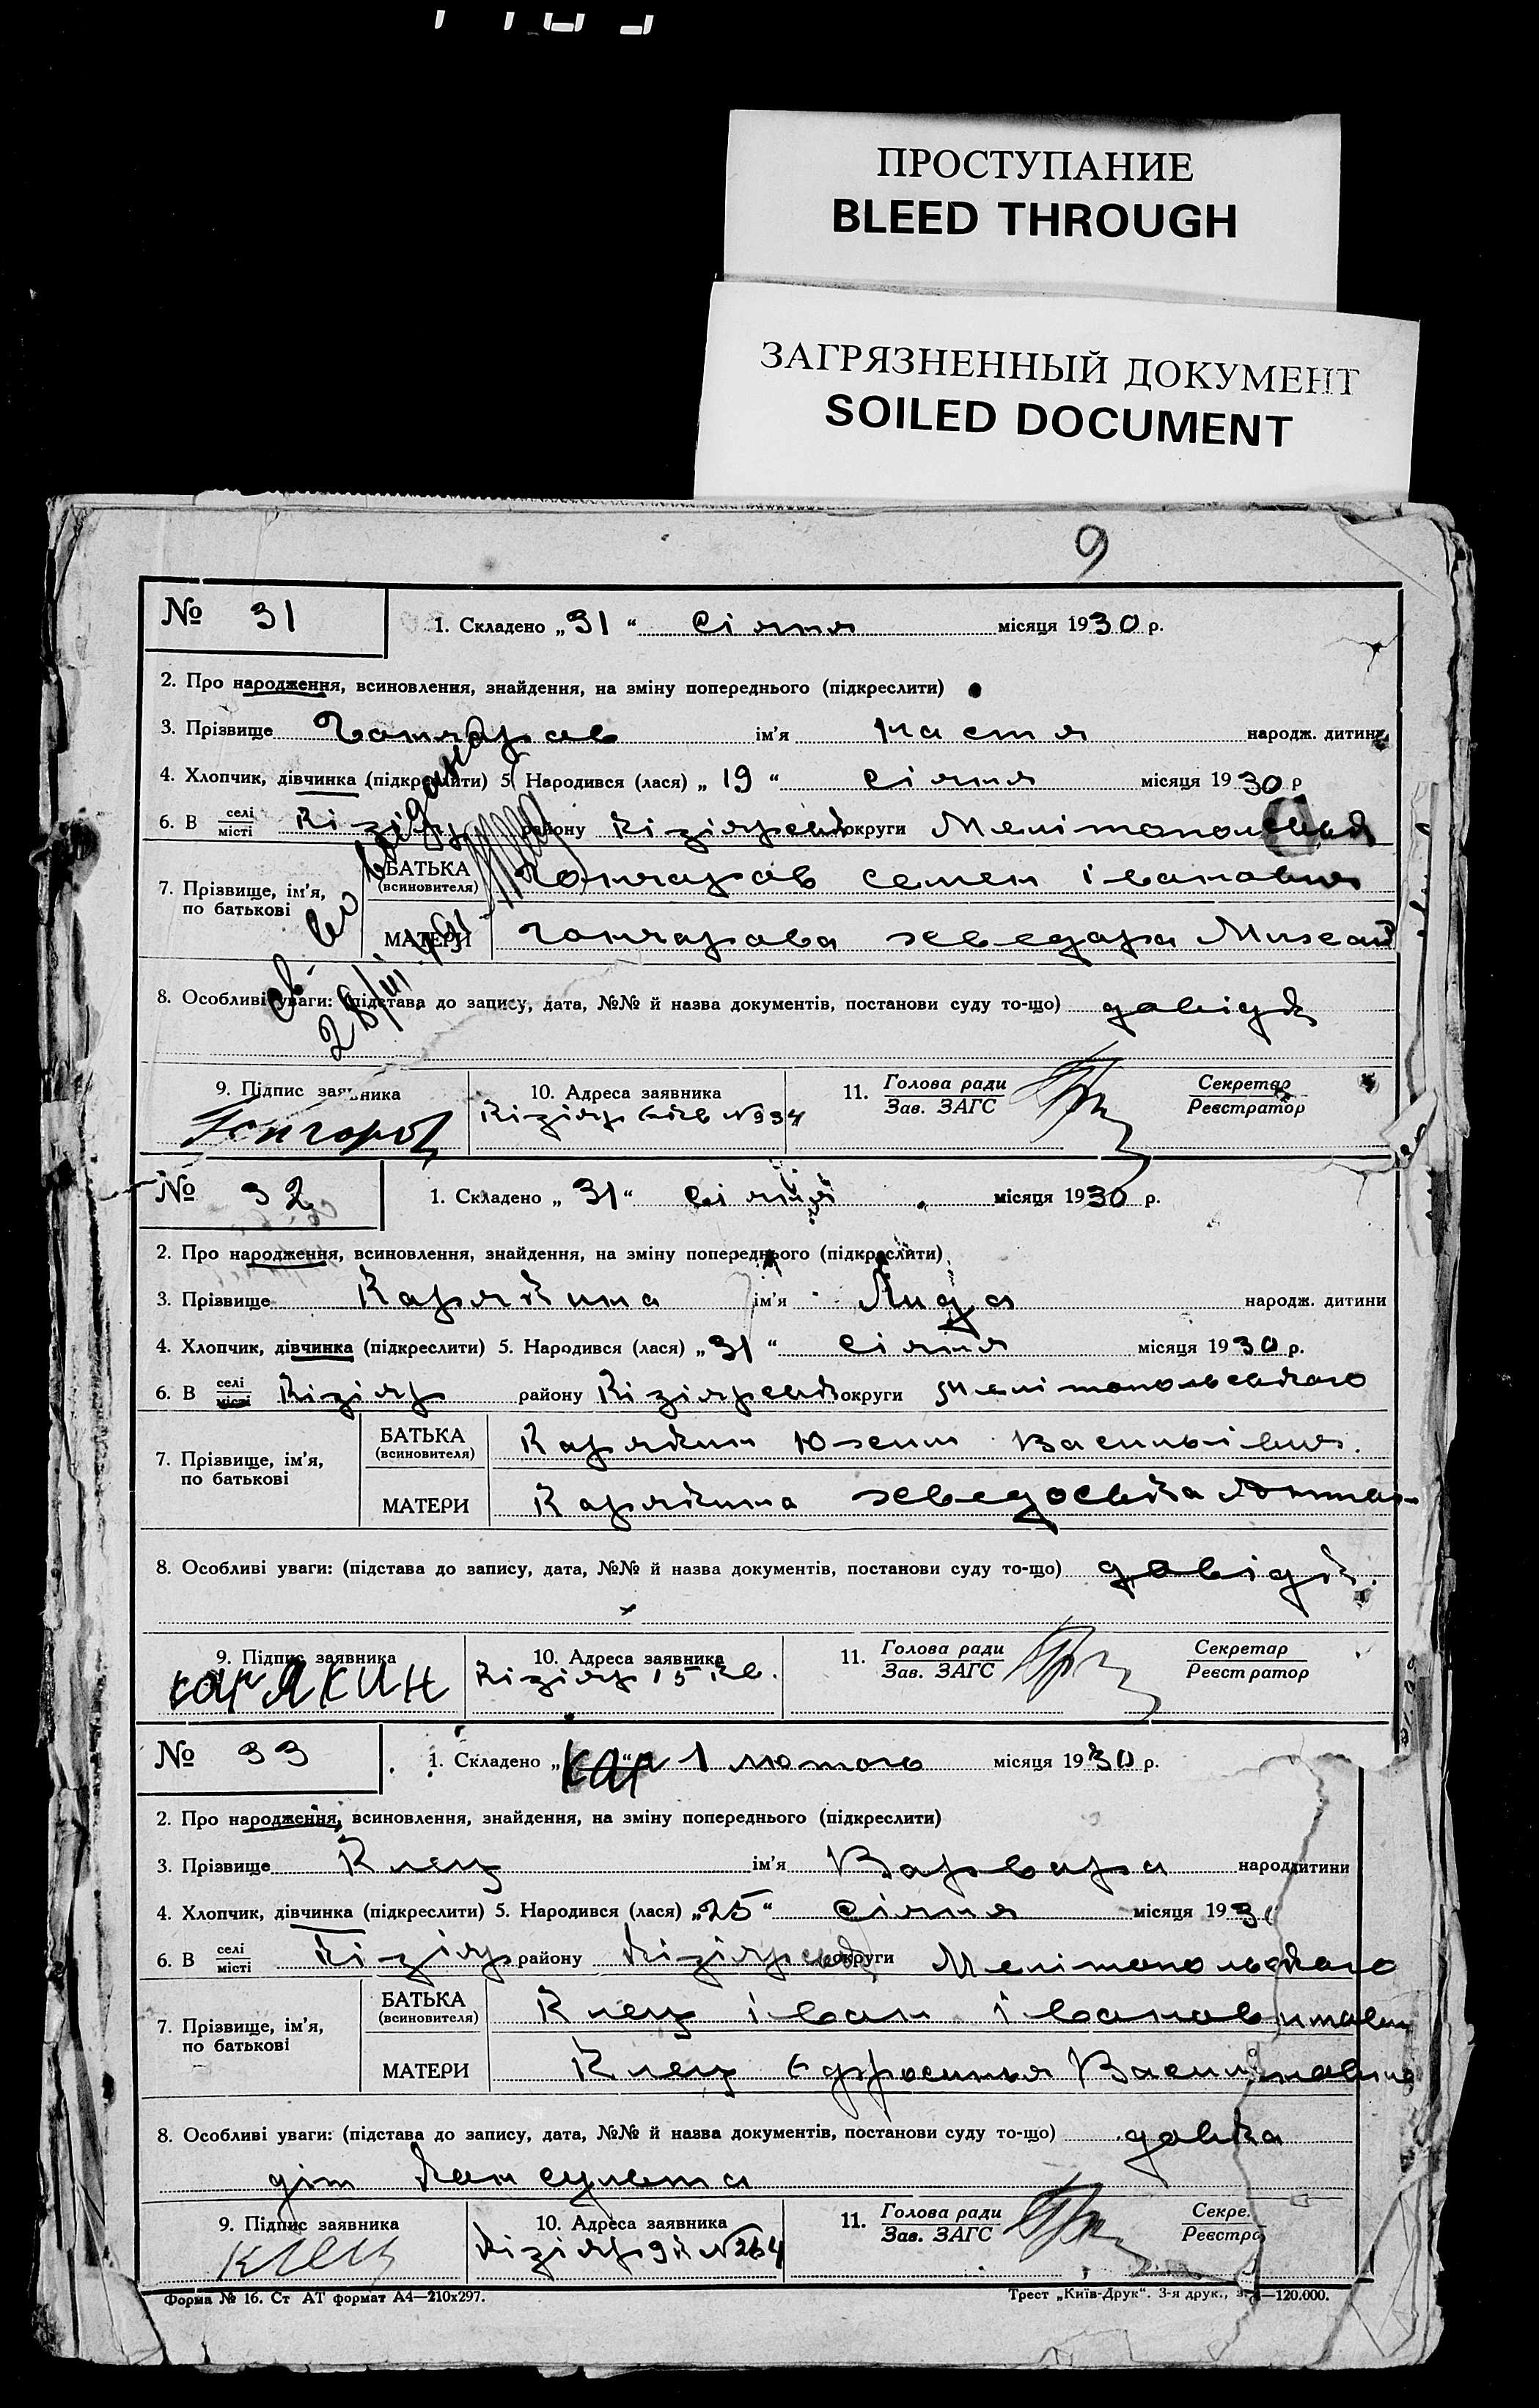 ПРОСТУПАНИЕ
BLEED THROUGH
ЗАГРЯЗНЕННЫЙ ДОКУМЕНТ
SOILED DOCUMENT
9
№ 31 1. Складено „31“ січня місяця 1930 р.
2. Про народження, всиновлення, знайдення, на зміну попереднього (підкреслити)
3. Прізвище Гончаров ім'я Настя народж. дитини
4. Хлопчик, дівчинка (підкреслити) 5. Народився (лася) „19“ січня місяця 1930 р
6. В селі/місті Кізіяр району Кізіярськ округи
7. Прізвище, ім'я, по батькові
БАТЬКА (всиновителя) Гончаров Семен Іванович
МАТЕРИ Гончарова
8. Особливі уваги: (підстава до запису, дата, №№ й назва документів, постанови суду то-що) довідк
9. Підпис заявника Гончаров
10. Адреса заявника Кізіяр
11. Голова ради/Зав. ЗАГС Секретар/Реєстратор
№ 32 1. Складено „31“ січня місяця 1930 р.
2. Про народження, всиновлення, знайдення, на зміну попереднього (підкреслити)
3. Прізвище Карякина ім'я Лида народж. дитини
4. Хлопчик, дівчинка (підкреслити) 5. Народився (лася) „31“ січня місяця 1930 р.
6. В селі/місті Кізіяр району Кізіярськ округи Мелітопольського
7. Прізвище, ім'я, по батькові
БАТЬКА (всиновителя) Карякин
МАТЕРИ Карякина
8. Особливі уваги: (підстава до запису, дата, №№ й назва документів, постанови суду то-що) довідк
9. Підпис заявника Карякин
10. Адреса заявника Кізіяр 15 кв.
11. Голова ради/Зав. ЗАГС Секретар/Реєстратор
№ 33 1. Складено „ 1 лютого місяця 1930 р.
2. Про народження, всиновлення, знайдення, на зміну попереднього (підкреслити)
3. Прізвище Клец ім'я Варвара народ дитини
4. Хлопчик, дівчинка (підкреслити) 5. Народився (лася) „25“ січня місяця 193
6. В селі/місті Кізіяр району Кізіярськ округи Мелітопольского
7. Прізвище, ім'я, по батькові
БАТЬКА (всиновителя) Клец Іван
МАТЕРИ Клец Єфросинья
8. Особливі уваги: (підстава до запису, дата, №№ й назва документів, постанови суду то-що) довка
діт консульта
9. Підпис заявника Клец
10. Адреса заявника Кізіяр
11. Голова ради/Зав. ЗАГС Секре./Реєстра
Форма № 16. Ст АТ формат А4—210х297.
Трест „Київ-Друк“. 3-я друк., —120.000.